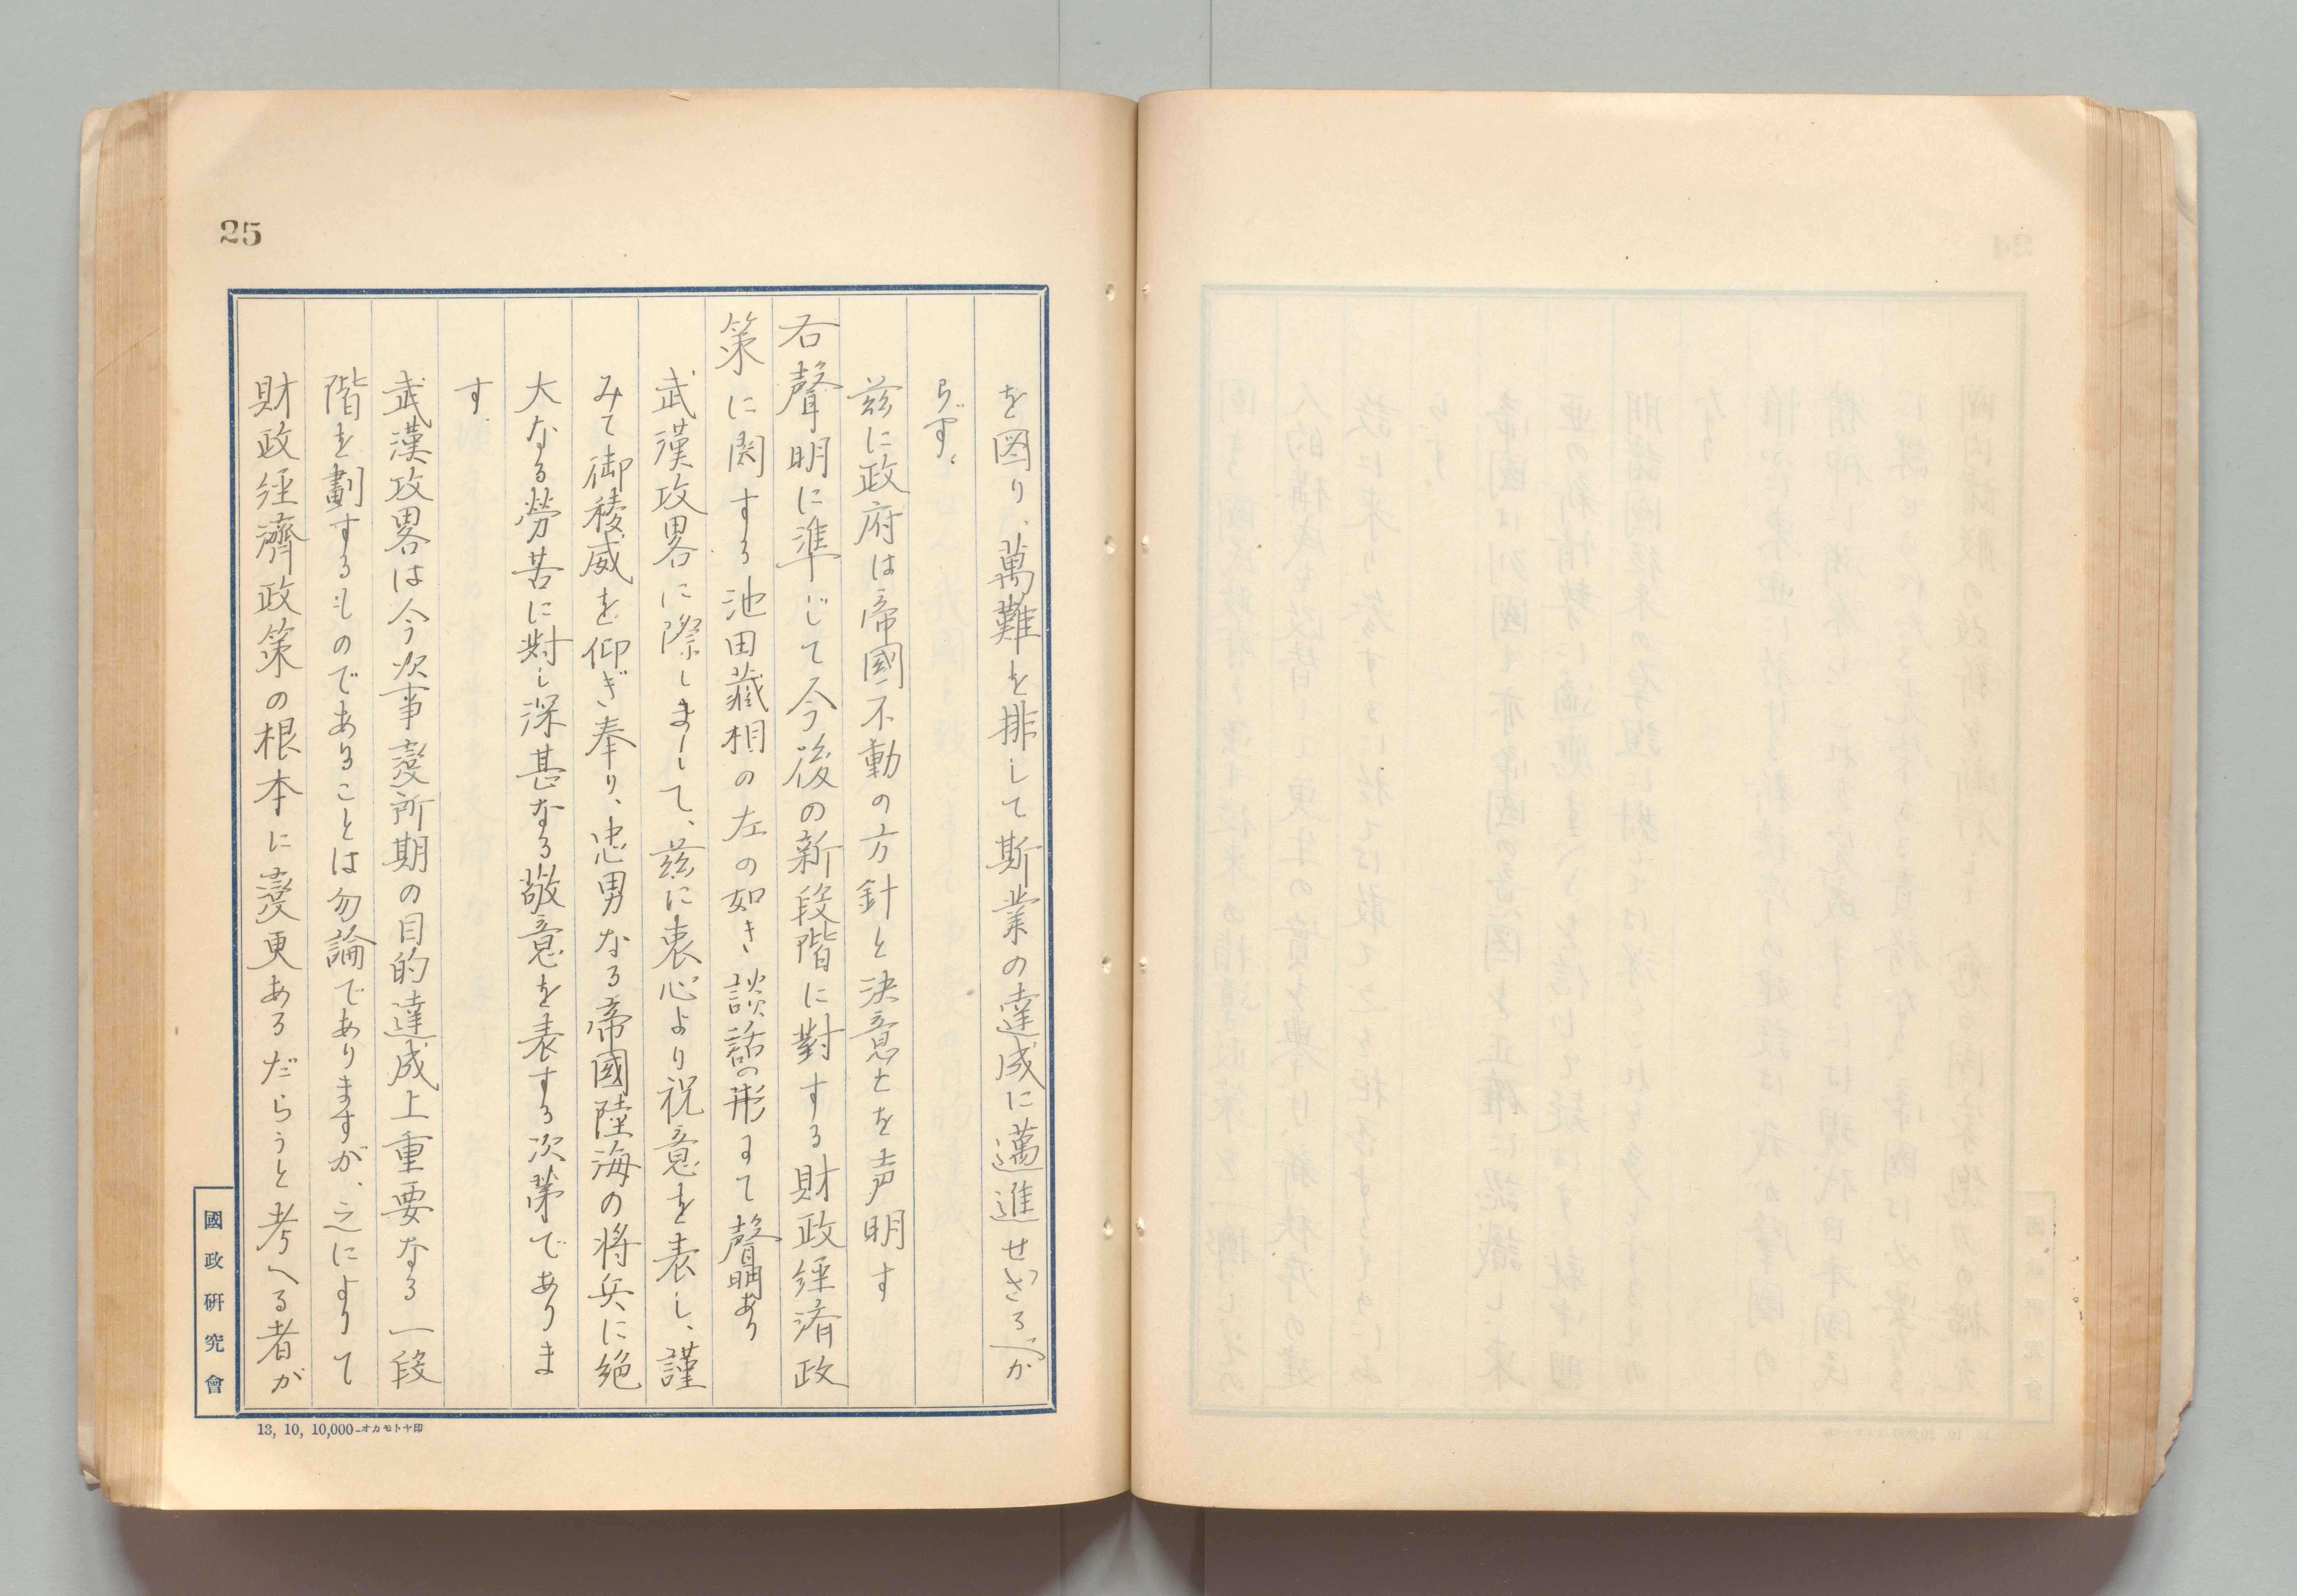 25
を図り、萬難を排して斯業の達成に邁進せざるべか
らず、
茲に政府は帝國不動の方針と決意とを声明す
右聲明に準じて今後の新段階に對する財政経済政
策に関する池田藏相の左の如き談話の形にて聲明あり
武漢攻畧に際しまして、茲に衷心より祝意を表し、謹
みて御稜威を仰ぎ奉り、忠勇なる帝國陸海の将兵に絶
大なる勞苦に對し深甚なる敬意を表する次第でありま
す.
武漢攻畧は今次事變所期の目的達成上重要なる一段
階を劃するものであることは勿論でありますが、之によりて
財政経濟政策の根本に變更あるだらうと考へる者が
國政研究會
13, 10, 10,000-オカモトヤ印